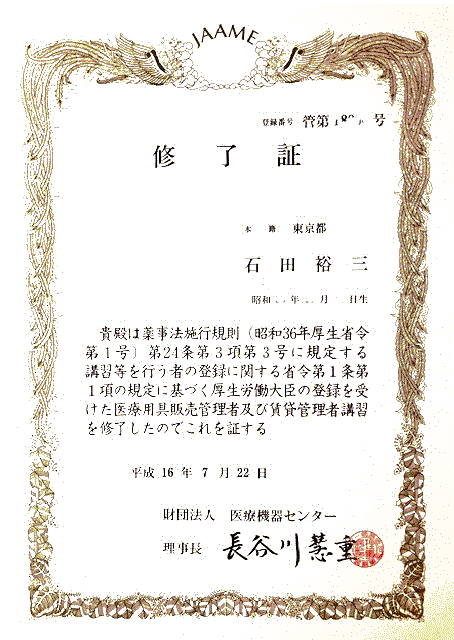 JAAME
登録番号 管第 号
修了証
本籍 東京都
石田裕三
昭和 年 月 日生
貴殿は薬事法施行規則（昭和36年厚生省令
第1号）第24条第3項第3号に規定する
講習等を行う者の登録に関する省令第1条第
1項の規定に基づく厚生労働大臣の登録を受
けた医療用具販売管理者及び賃貸管理者講習
を修了したのでこれを証する
平成16年7月22日
財団法人 医療機器センター
理事長 長谷川慧重